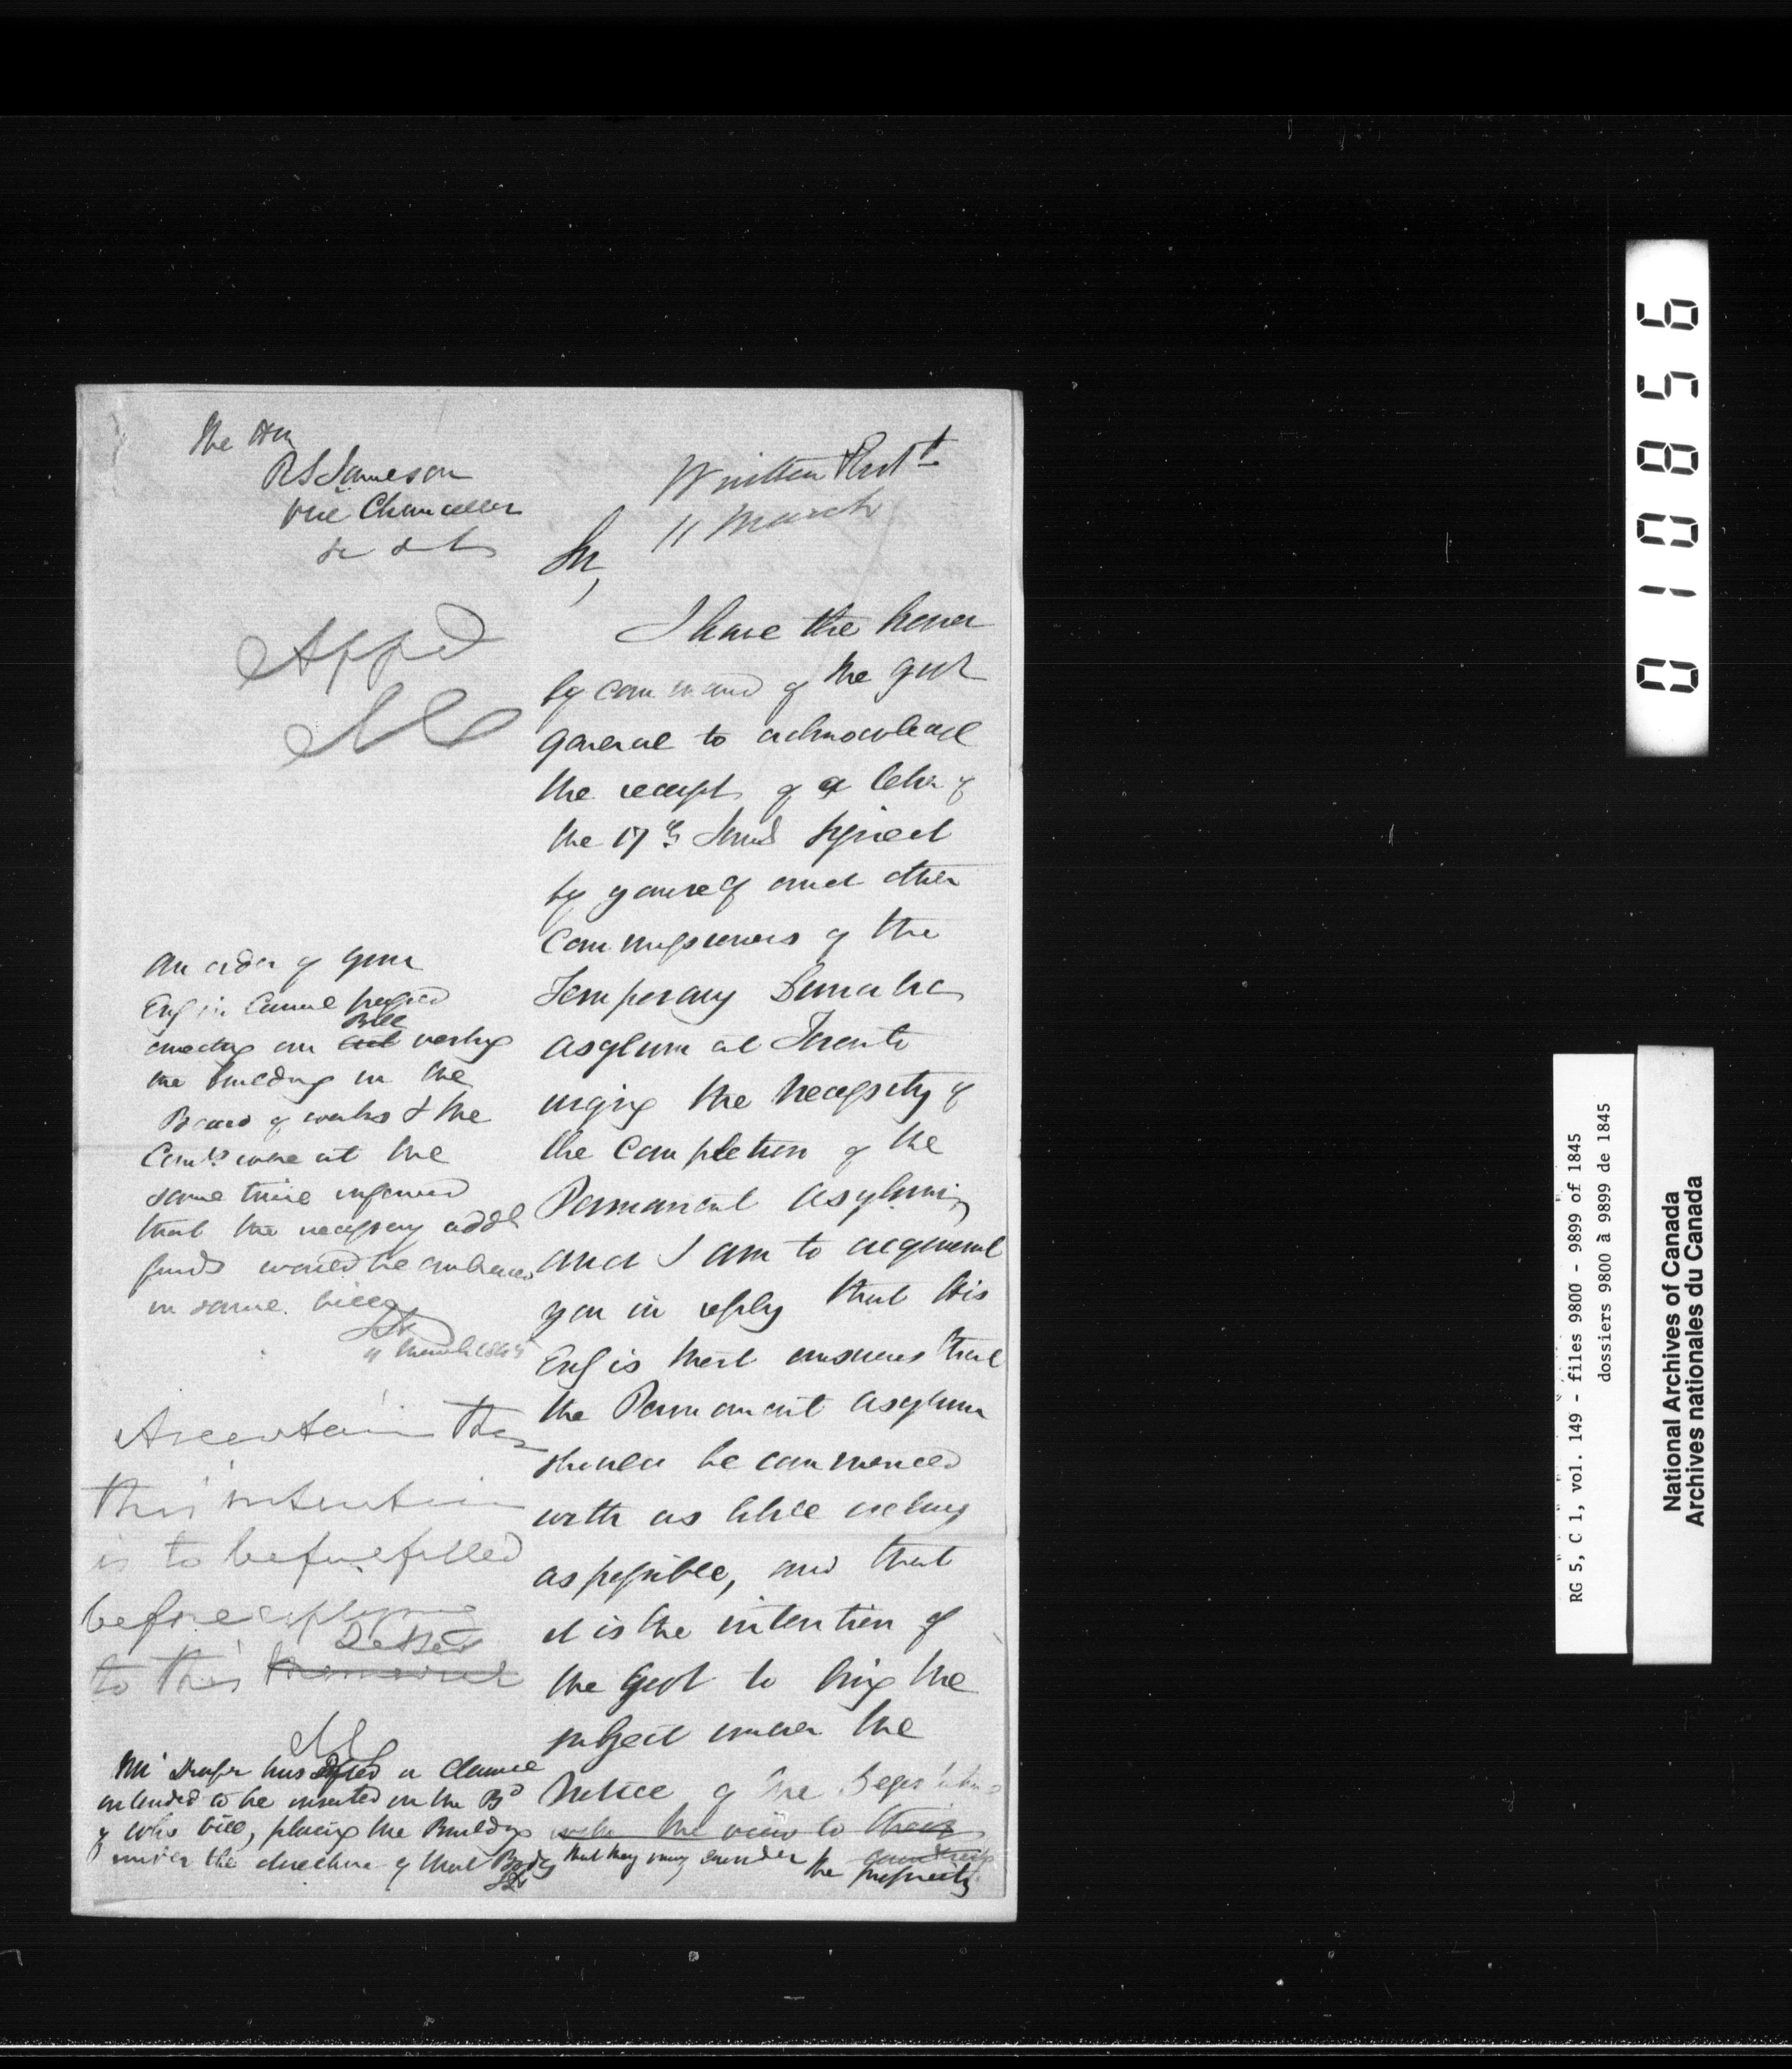 The Hon
R S Jameson
Vice Chancellor
Appd
Written
11 March
Sir,
I have the honor
by command of the Govr
General to acknowledge
the receipt of a letter of
the 17th signed
by yourself and other
Commissioners of the
Temporary Lunatic
Asylum at Toronto
urging the necessity of
the completion of the
Permanent Asylum,
and I am to acquaint
you in reply that His
Exy is most anxious that
the Permanent Asylum
should be commenced
with as little delay
as possible, and that
it is the intention of
the Govt to bring the
subject under the
notice of the Legislature
with the view to their
that they may consider the
propriety
An order of Govr
Exy in Council passed
directing an Act Bill vesting
the building in the
Board of Works & the
Comrs were at the
same time informed
that the necessary addl
funds would be embraced
in same bill
11 March 1845
Ascertain
this intention
is to be fulfilled
before replying
to this Memorial Letter
Mr Draper has drafted a Clause
intended to be inserted in the Bd
of Wks bill, placing the Building
under the direction of that Body
0 1 0 8 5 6
RG 5, C 1, vol. 149 - files 9800 - 9899 of 1845
dossiers 9800 à 9899 de 1845
National Archives of Canada
Archives nationales du Canada